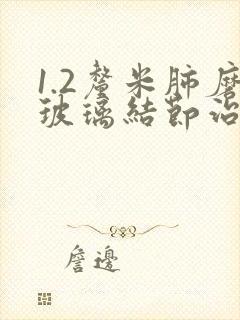 1.2釐米肺磨
玻璃結節治
詹邊